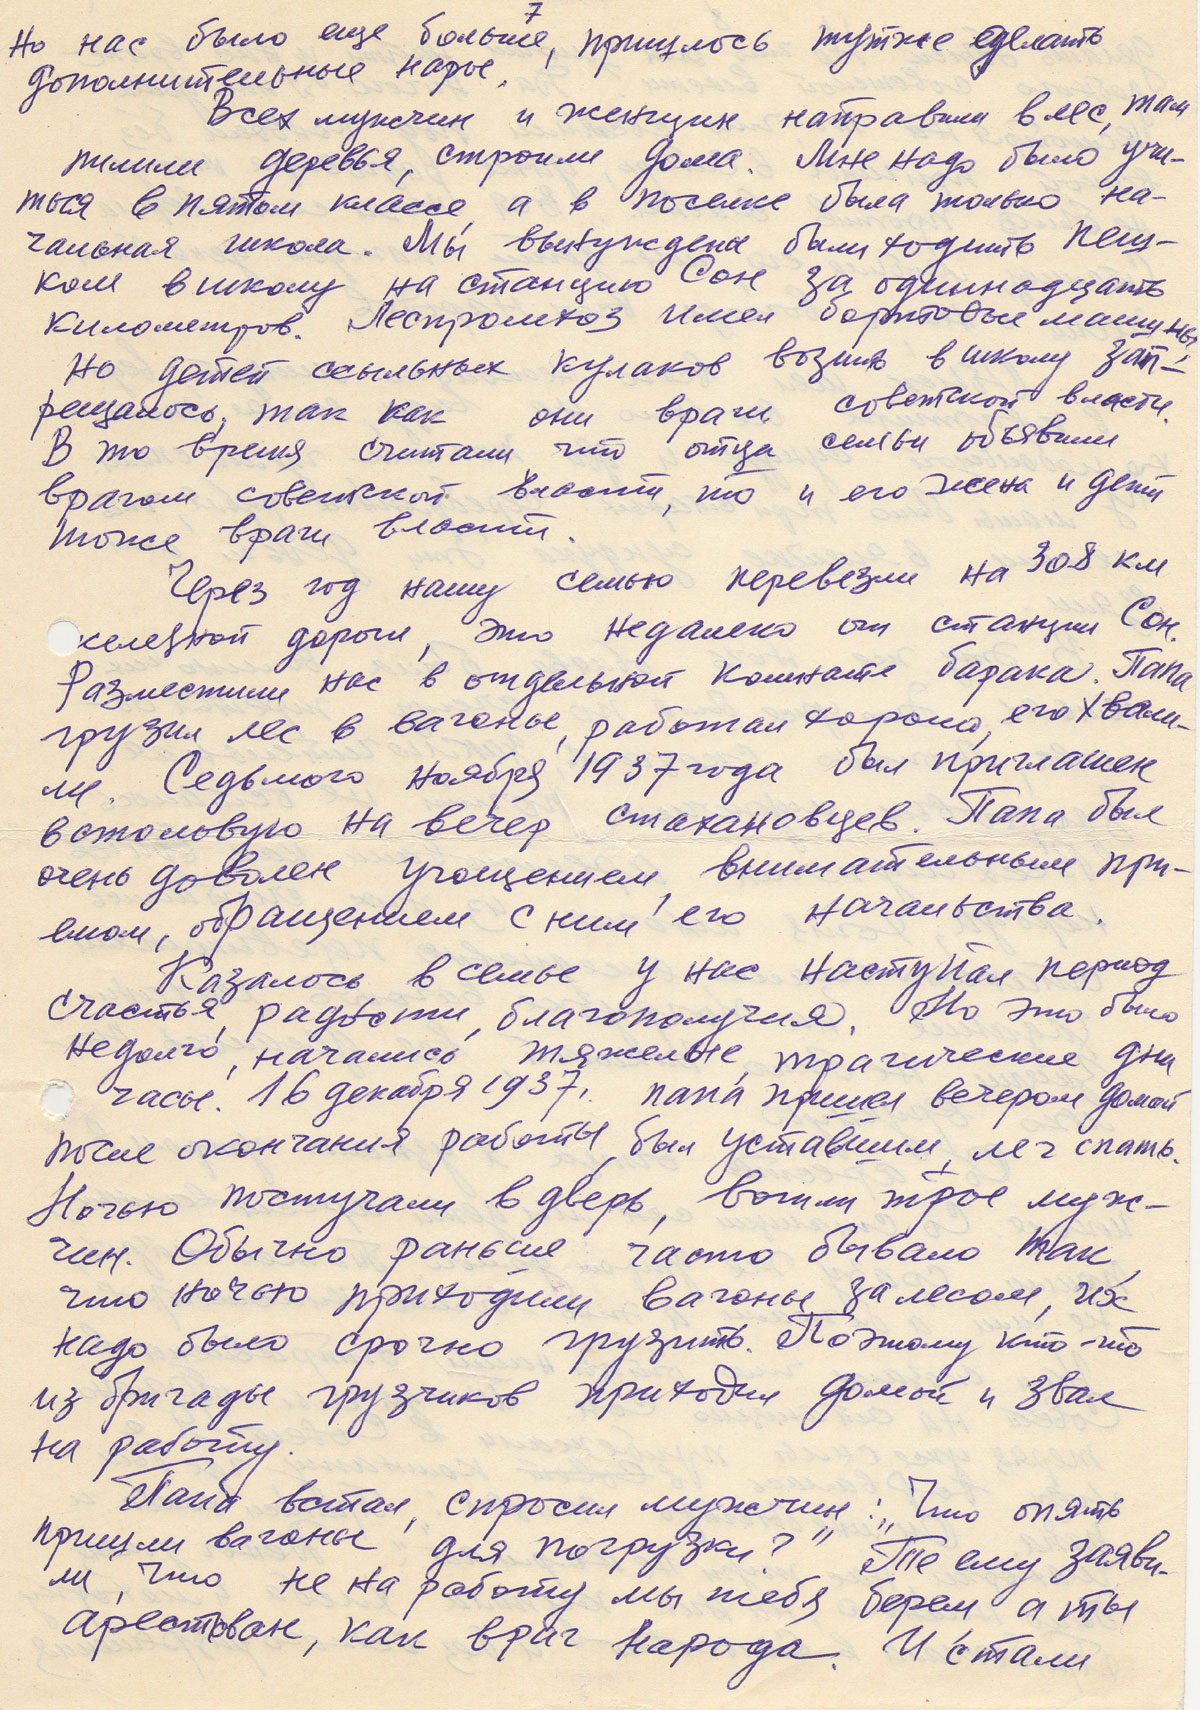 7
Но нас было еще больше, пришлось тут же сделать
дополнительные нары.
Всех мужчин и женщин направили в лес, там
пилили деревья, строили дома. Мне надо было учи-
ться в пятом классе, а в поселке была только на-
чальная школа. Мы вынуждены были ходить пеш-
ком в школу на станцию Сон за одиннадцать
километров. Леспромхоз имел бортовые машины,
но детей ссыльных кулаков возить в школу зап-
рещалось, так как они враги советской власти.
В то время считали что отца семьи объявили
врагом советской власти, то и его жена и дети
тоже враги власти.
Через год нашу семью перевезли на 308 км
железной дороги, это недалеко от станции Сон.
Разместили нас в отдельной комнате барака. Папа
грузил лес в вагоны, работал хорошо, его хвали-
ли. Седьмого ноября 1937 года был приглашен
в столовую на вечер стахановцев. Папа был
очень доволен угощением, внимательным при-
емом, обращением с ним его начальства.
Казалось в семье у нас наступил период
счастья, радости, благополучия. Но это было
недолго, начались тяжелые, трагические дни
часы. 16 декабря 1937г. папа пришел вечером домой
после окончания работы, был уставшим, лег спать.
Ночью постучали в дверь, вошли трое муж-
чин. Обычно раньше часто бывало так,
что ночью приходили вагоны за лесом, их
надо было срочно грузить. Поэтому кто-то
из бригады грузчиков приходил домой и звал
на работу.
Папа встал, спросил мужчин: „Что опять
пришли вагоны для погрузки?" Те ему заяви-
ли, что не на работу мы тебя берем а ты
арестован, как враг народа. И стали